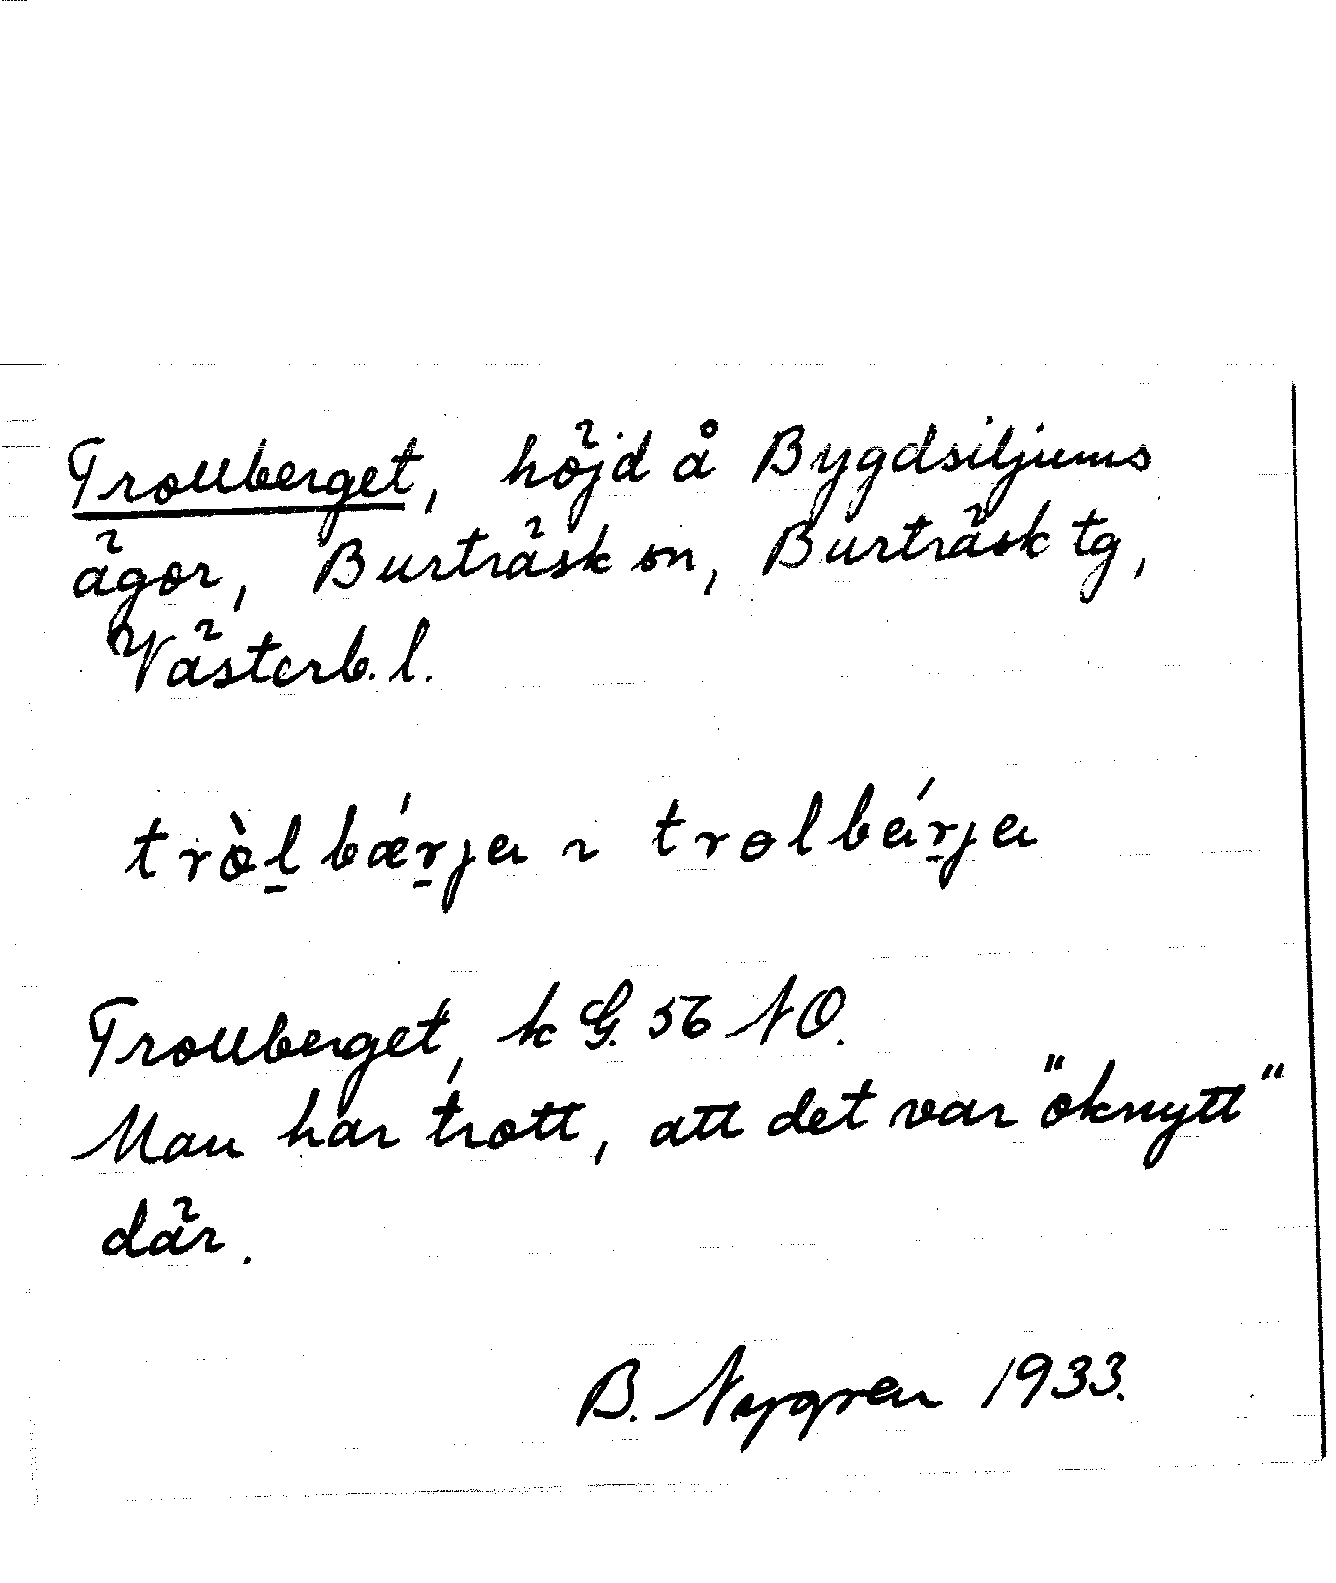 Trollberget, höjd å Bygdsiljums
ägor, Burträsk sn, Burträsk tg,
Västerb. l.
tròl̠ bǽr̠ja ~ trolbár̠ja
Trollberget, k G. 56 NO.
Man har trott, att det var "oknytt"
där.
B. Nygren 1933.